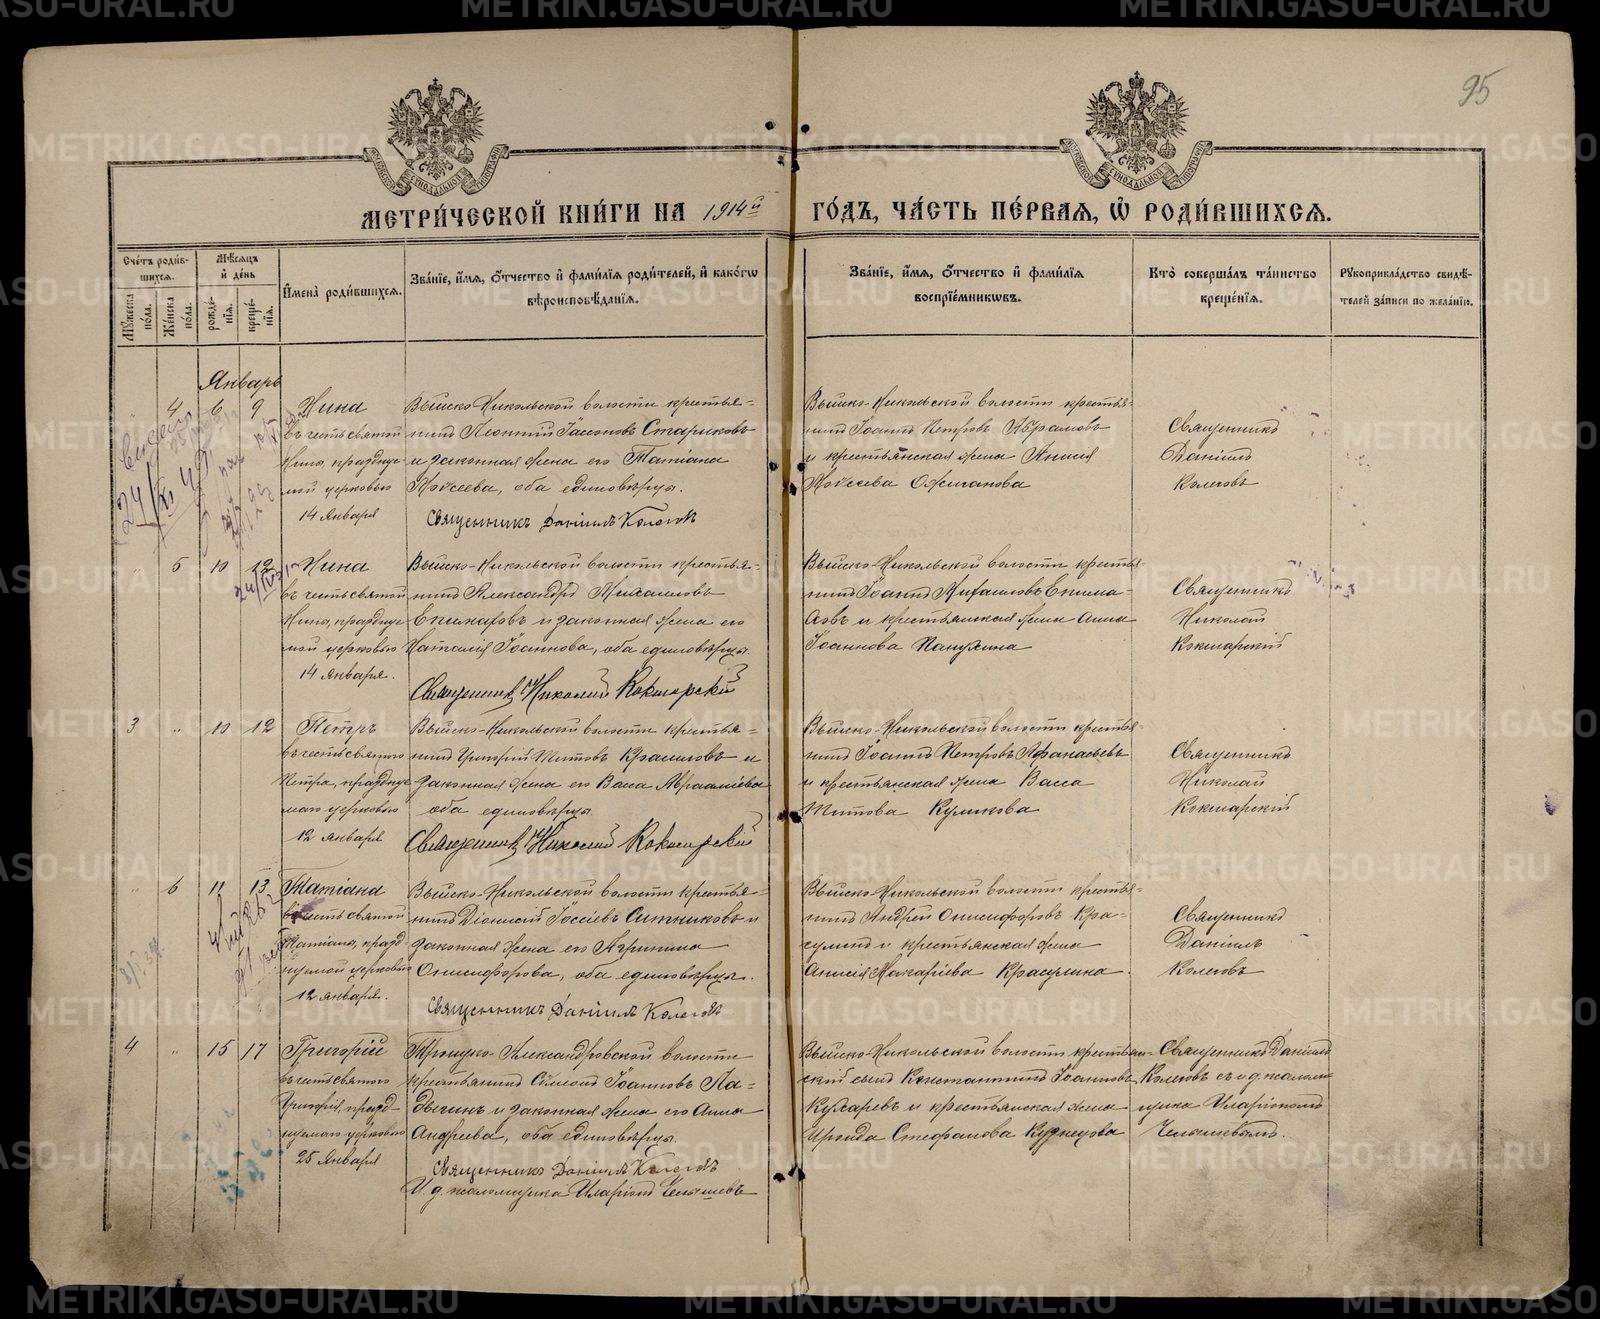 95
МЕТРИ́ЧЕСКОЙ КНИ́ГИ НА 1914й ГО́ДЪ, ЧА́СТЬ ПЕ́РВАЯ, Ѡ РОДИ́ВШИХСЯ.
Сче́тъ роди́в-
шихся.
Мꙋ́жеска по́ла.
Же́нска по́ла.
Мѣ́сяцъ
и҆ де́нь
рожде́-
нїя.
креще́-
нїя.
И҆мена̀ роди́вшихся.
Зва́нїе, и҆́мя, ѻ҆́тчество и҆ фами́лїя роди́телей, и҆ како́гѡ
вѣроисповѣ́данїя.
Зва́нїе, и҆́мя, ѻ҆́тчество и҆ фами́лїя
воспрїе́мникѡвъ.
Кто̀ соверша́лъ та́инство
креще́нїя.
Рꙋкоприкла́дство свидѣ́-
телей за́писи по жела́нїю.
Январь
" 4 6 9
Нина
въ честь святой
Нины, праздну-
мой церковью
14 Января
Выйско-Никольской волости крестья-
нинъ Леонтій Іасоновъ Стариковъ
и законная жена его Татіана
Моѵсеева, оба единовѣрцы.
Священникъ Даніилъ Колеговъ
Выйско-Никольской волости крестья-
нинъ Іоаннъ Петровъ Абрамовъ
и крестьянская жена Анисія
Моѵсеева Ожиганова
Священникъ
Даніилъ
Колеговъ
" 5 10 12
Нина
въ честь святой
Нины, праздну-
мой церковью
14 Января.
Выйско-Никольской волости крестья-
нинъ Александръ Михаиловъ
и законная жена его
Наталія Іоаннова, оба единовѣрцы.
Священникъ Николай Кокшарскій
Выйско-Никольской волости крестья-
нинъ Іоаннъ Михаиловъ
и крестьянская жена Анна
Іоаннова
Священникъ
Николай
Кокшарскій
3 " 10 12
Петръ
въ честь святого
Петра, праздну-
маго церковью
12 Января
Выйско-Никольской волости крестья-
нинъ Григорій Титовъ Красиловъ и
законная жена его Васса Авраамиева
оба единовѣрцы
Священникъ Николай Кокшарскій
Выйско-Никольской волости крестья-
нинъ Іоаннъ Петровъ Афанасьевъ
и крестьянская жена Васса
Титова Куликова
Священникъ
Николай
Кокшарскій
" 6 11 13
Татіана
въ честь святой
Татіаны, празд-
нуемой церковью
12 Января.
Выйско-Никольской волости крестья-
нинъ Діонисій Іосіевъ Ситниковъ и
законная жена его Агрипина
Онисифорова, оба единовѣрцы.
Священникъ Даніилъ Колеговъ
Выйско-Никольской волости крестья-
нинъ Андрей Онисифоровъ Кра-
сулинъ и крестьянская жена
Анисія Макаріева Красулина.
Священникъ
Даніилъ
Колеговъ
4 " 15 17
Григорій
въ честь святого
Григорія, празд-
нуемаго церковью
25 Января
Троицко-Александровской волости
крестьянинъ Сѵмеонъ Іоанновъ Ла-
дыгинъ и законная жена его Анна
Андреева, оба единовѣрцы.
Священникъ Даніилъ Колеговъ
И. д. псаломщика Иларіонъ
Выйско-Никольской волости крестьян-
скій сынъ Константинъ Іоанновъ
Кухаревъ и крестьянская жена
Ираида Стефанова Кузнецова
Священникъ Даніилъ
Колеговъ съ и. д. псалом-
щика Иларіономъ